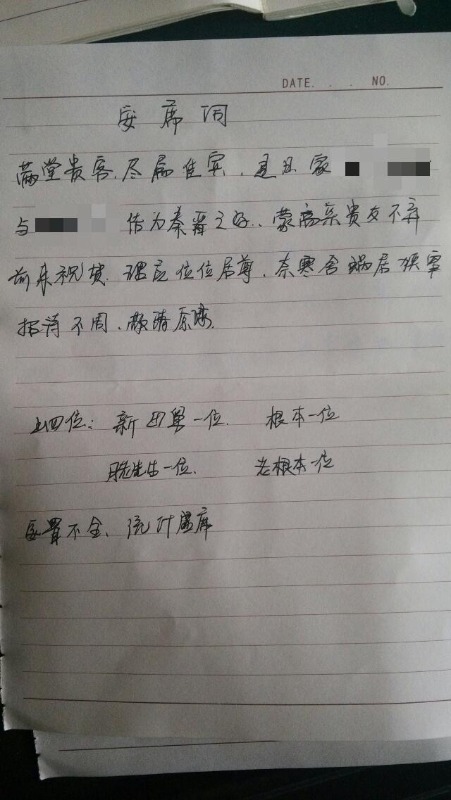 DATE. . . NO.
安席词
满堂贵客,尽属佳宾,是因家
与 结为秦晋之好、蒙高亲贵友不弃
前来祝贺、理应位位居尊,奈寒舍蜗居狭窄
招待不周、敬请原谅.
上四位: 新四里一位. 根本一位
先生一位. 老根本一位
位置不全、统计虚席